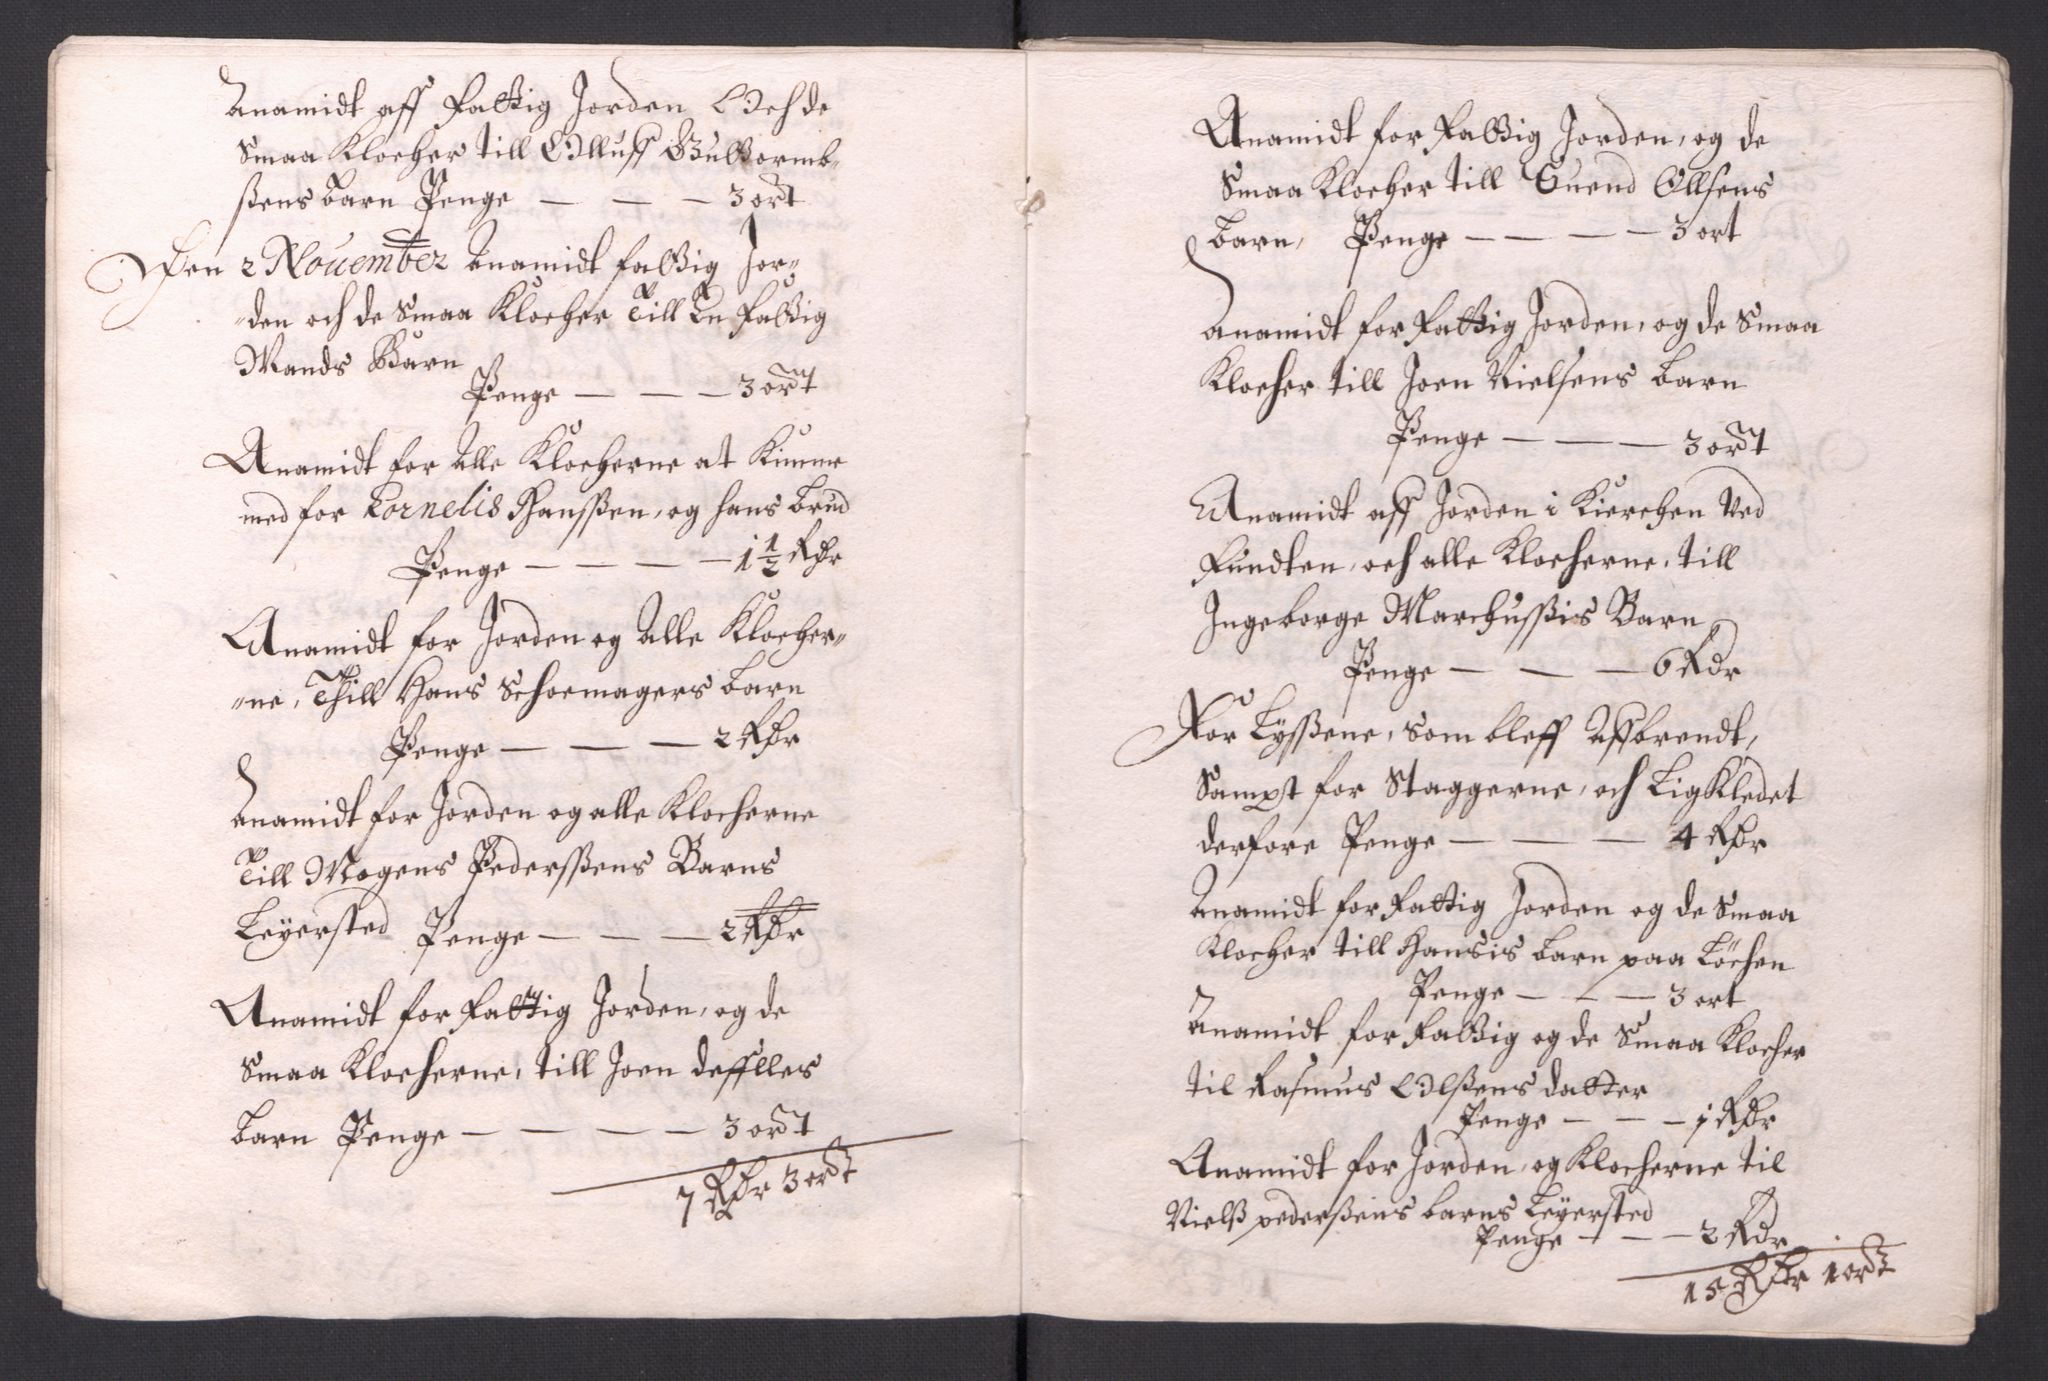 Anamidt aff Fattig Jorden Och de
Smaa Klocher till Olluff Guttormb-
ßens barn Penge — — — 3 ort
Den 2 Nouember Anamidt fattig Jor=
=den och de Smaa Klocher Till En fattig
Mands Barn
Penge — — — 3 ort
Anamidt for Alle Klocherne at Kimme
med for Cornelis Hanßen, og hans brud
Penge — — — — 1 1/2 Rdr
Anamidt for Jorden og Alle Klocher=
=ne, Thill Hans Schoemagers barn
Penge — — — 2 Rdr
Anamidt for Jorden og alle Klocherne
Till Mogens Pederßens Barns
Leyersted Penge — — — 2 Rdr
Anamidt for Fattig Jorden, og de
Smaa Klocherne, till Joen
barn Penge — — — — 3 ort
7 Rdr 3 ort
Anamidt for Fattig Jorden, og de
Smaa Klocher till Suend Ollsens
barn, Penge — — — — 3 ort
Anamidt for Fattig Jorden, og de Smaa
Klocher till Joen Nielsens barn
Penge — — — 3 ort
Anamidt aff Jorden i Kierchen Ved
Fundten, och alle Klocherne, till
Ingeborge Marchußis Barn
Penge — — — 6 Rdr
For Lyßene, som bleff Affbrendt,
Sampt for Staggerne, och LigKledet
derfore Penge — — — 4 Rdr
Anamidt for Fattig Jorden og de Smaa
Klocher till Hansis barn paa Löchen
Penge — — — 3 ort
Anamidt for Fattig og de Smaa Klocher
til Rasmus Olßens datter
Penge — — — 1 Rdr
Anamidt for Jorden, og Klocherne til
Nielß pederßens barns Leyersted
Penge — — — 2 Rdr
15 Rdr 1 ort